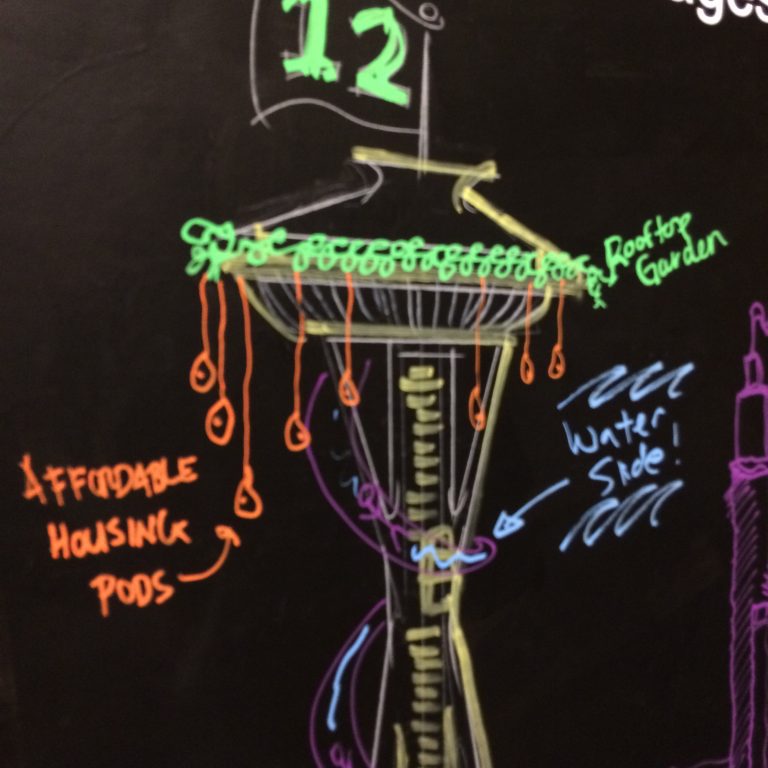 12
Rooftop
Garden
Water
Slide!
AFFORDABLE
HOUSING
PODS